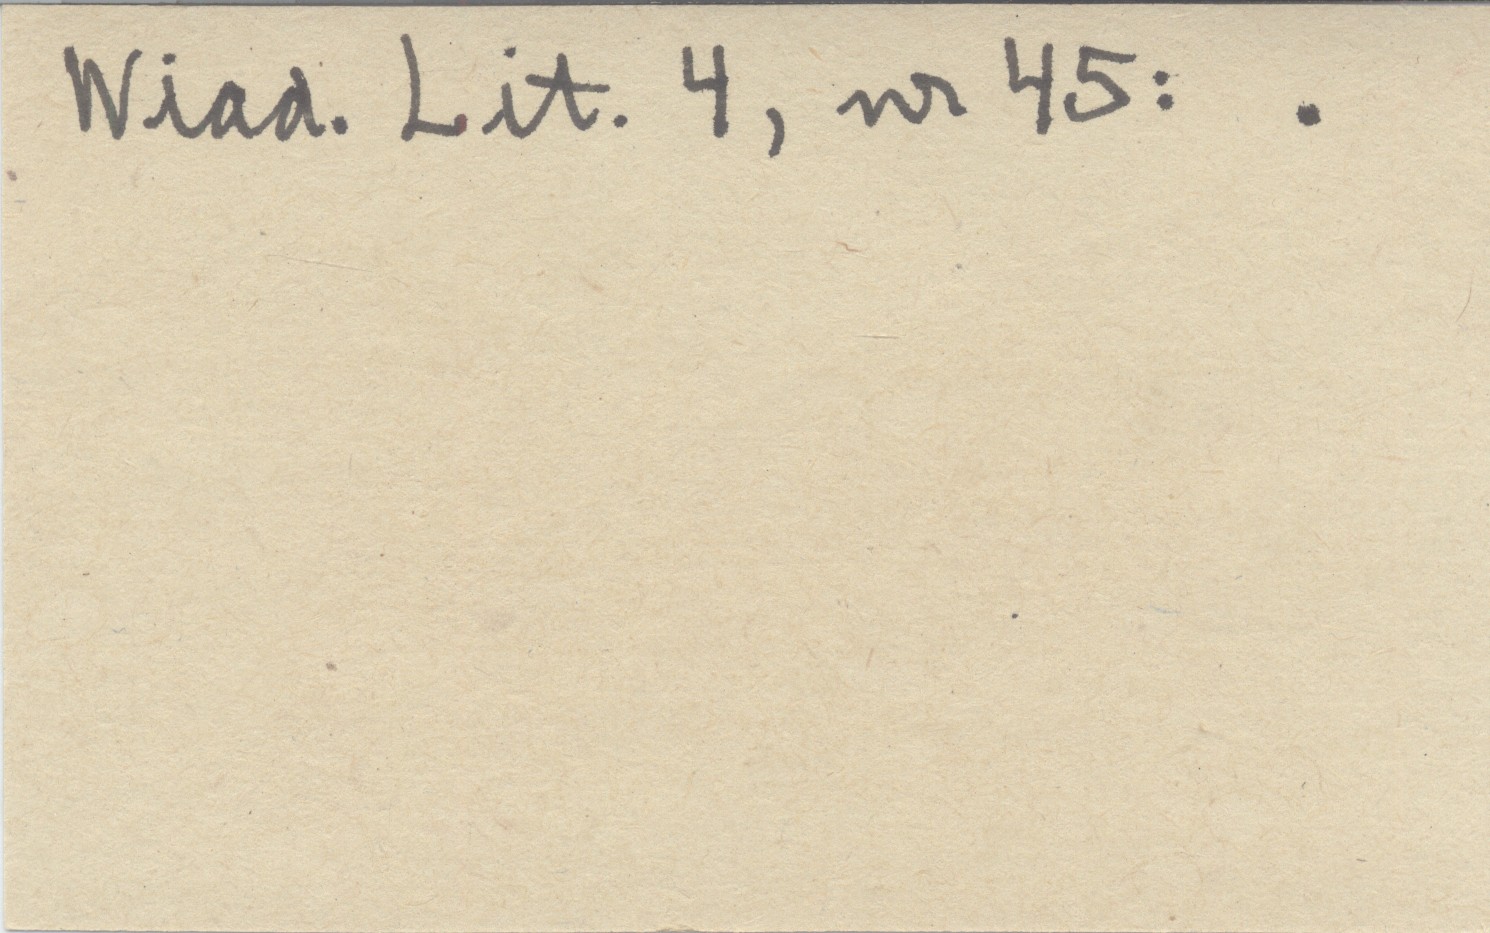 Wiad. Lit. 4, nr 45: .